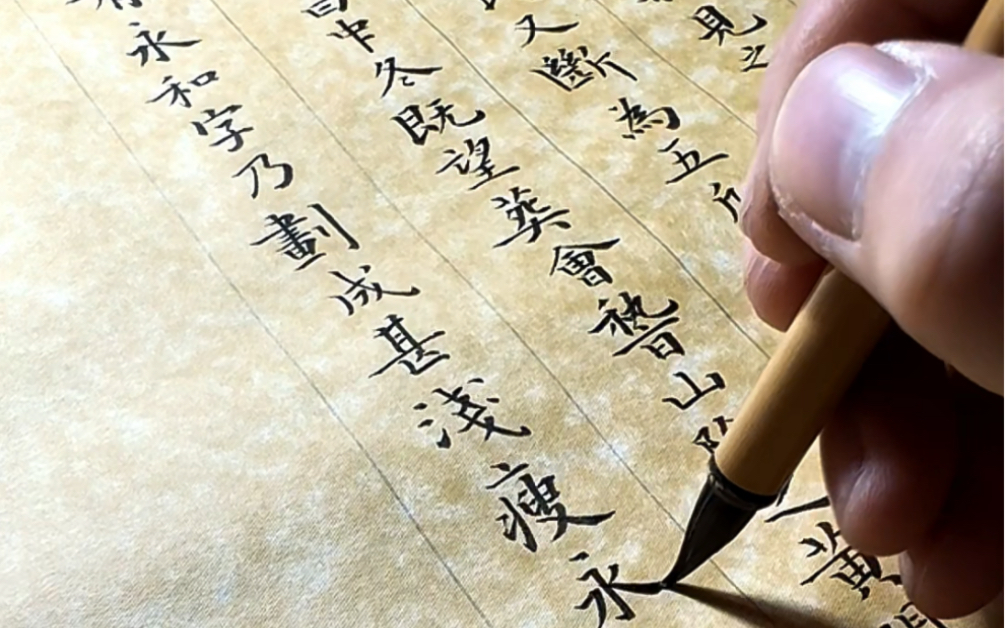 見之
又斷為五
中冬既望葬會稽山
黃
永和字乃劃成甚淺瘦永